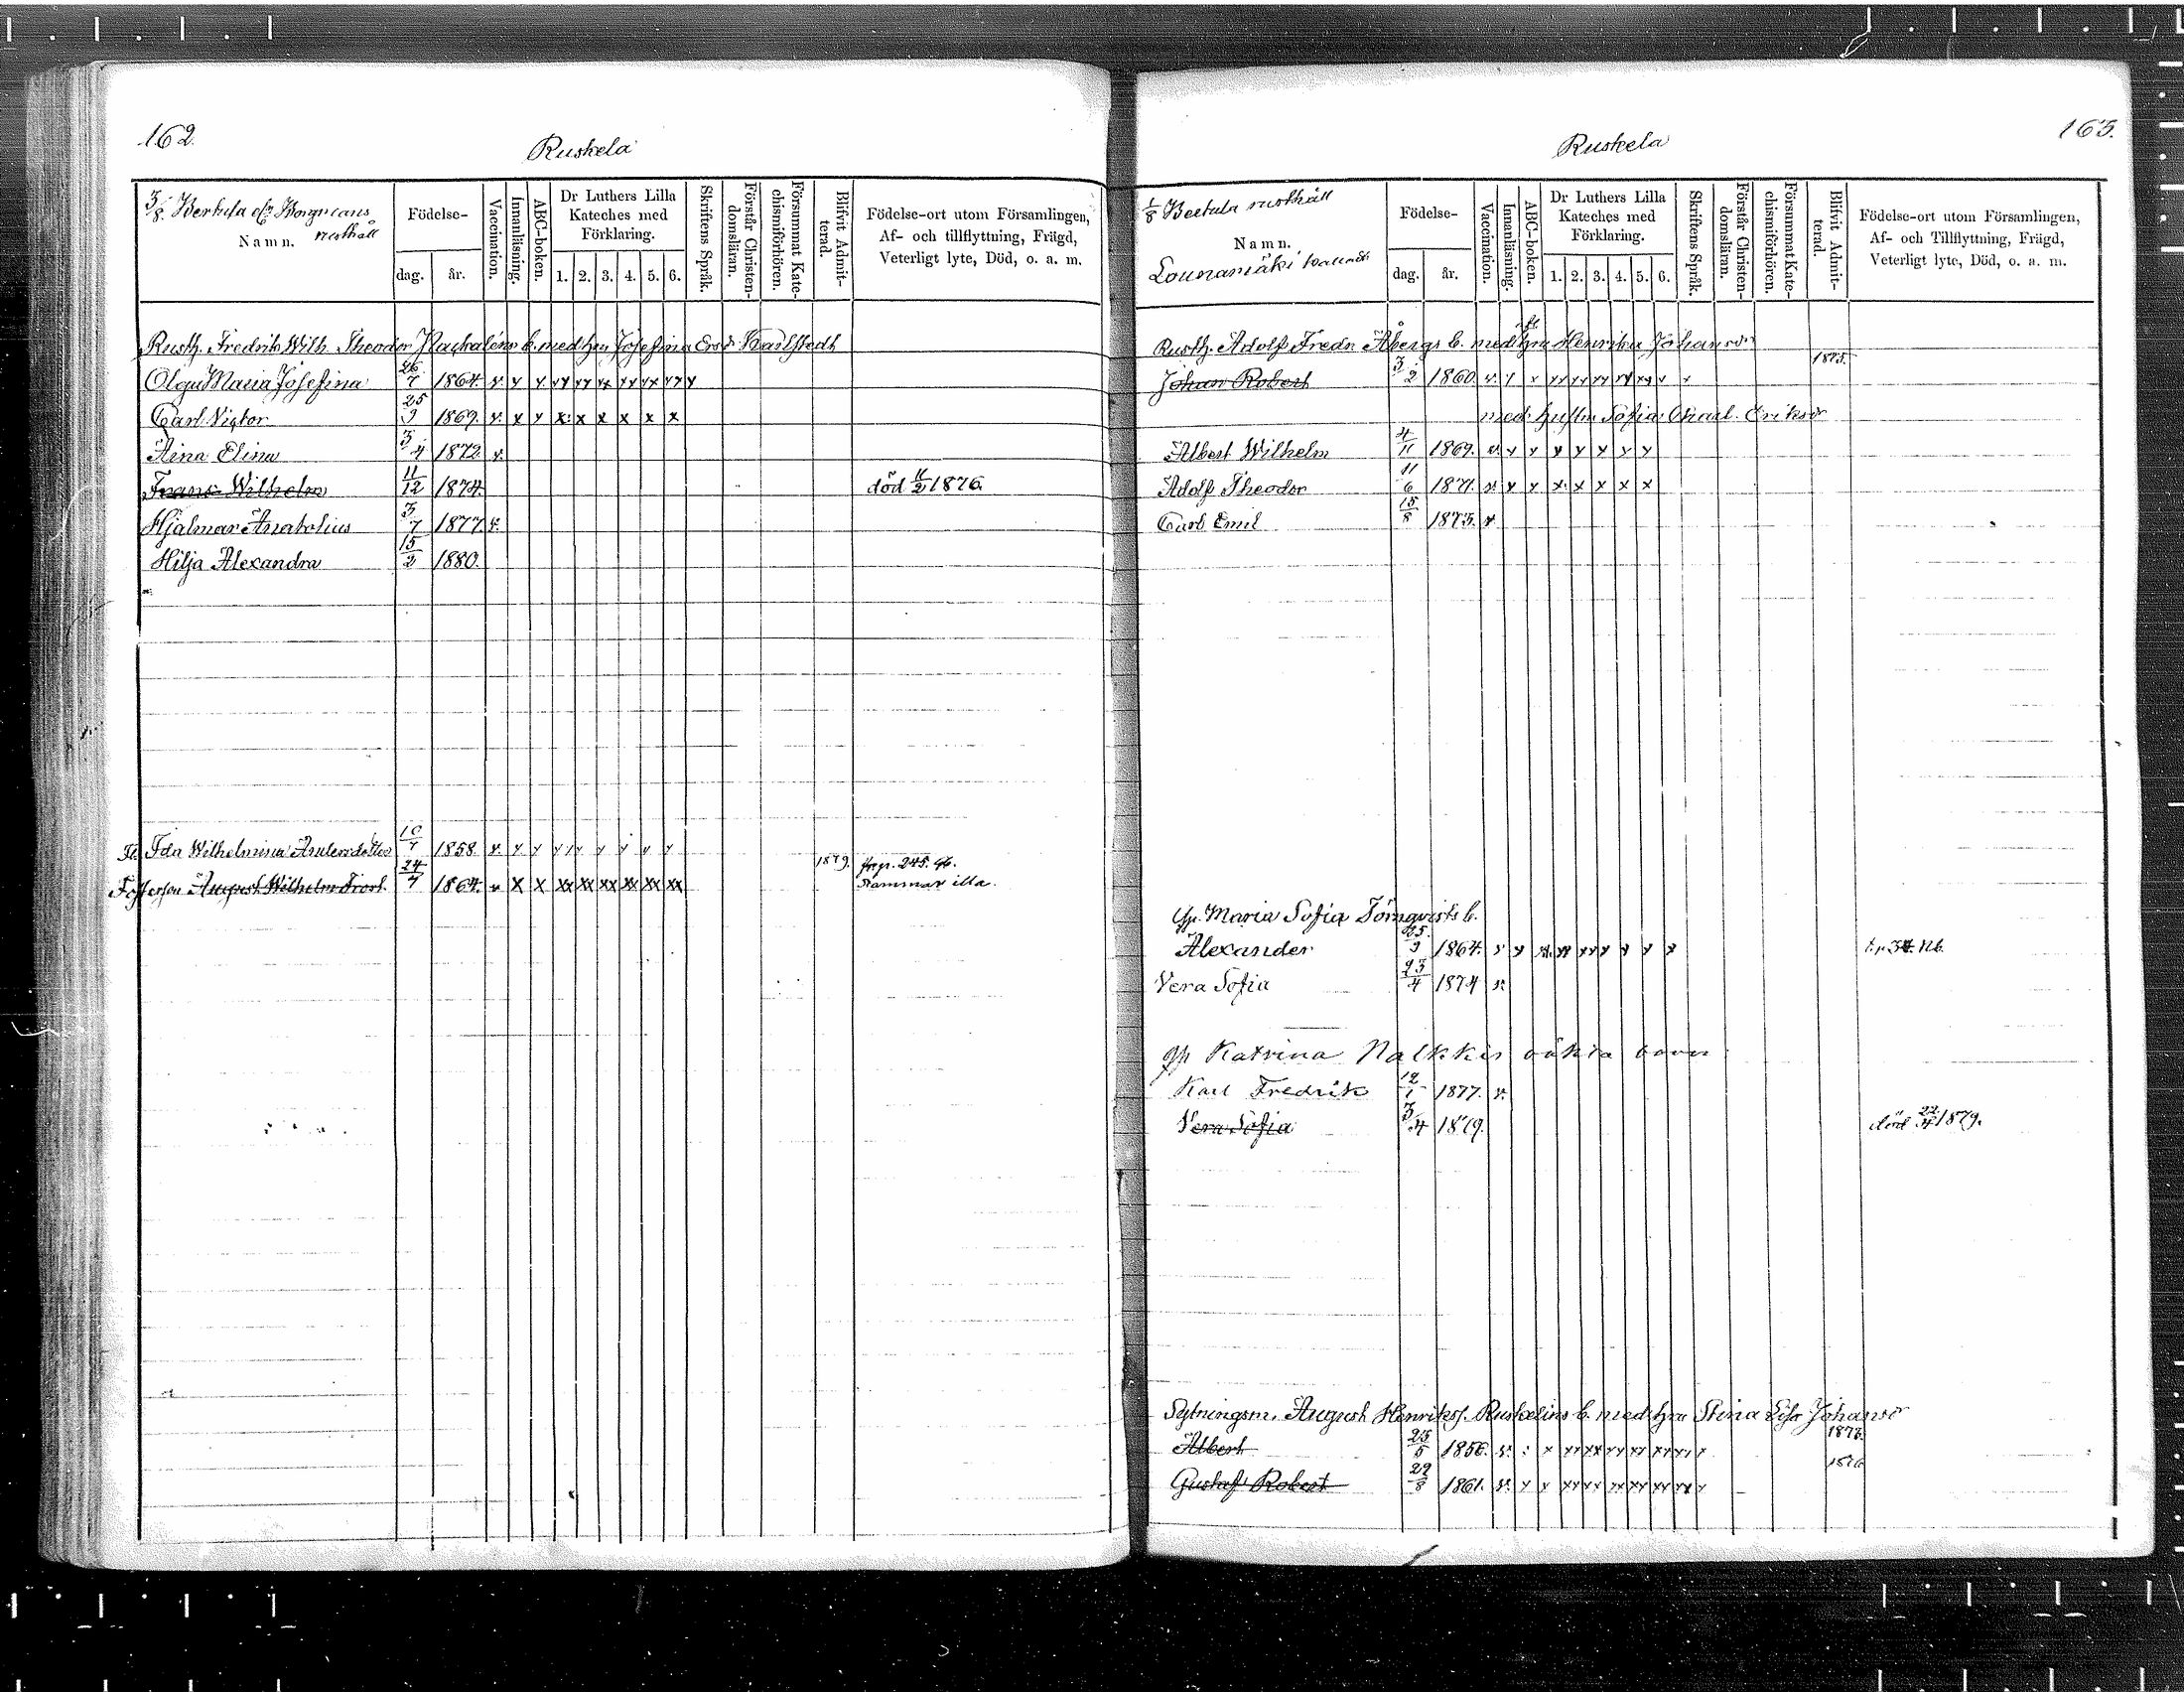 162.
Ruskela
3/8. Bertula
rusthåll
Namn.
Födelse-
dag.
år.
Vaccination.
Innanläsning.
ABC-boken.
Dr Luthers Lilla
Kateches med
Förklaring.
1. 2. 3. 4. 5. 6.
Skriftens Språk.
Förstår Christen-
domsläran.
Försummat Kate-
chismiförhören.
Blifvit Admit-
terad.
Födelse-ort utom Församlingen,
Af- och tillflyttning, Frägd,
Veterligt lyte, Död, o. a. m.
Rusth. Fredrik Wilh. Theodor b. med hu Josefina Ersdr Karlstedt
Olga Maria Josefina 26/7 1864. v. x x xx xx xx xx xx xx x
Carl Victor 25/9 1869. v. x x x x x x x x
Aina Elina 3/4 1872 v.
Frans Wilhelm 11/12 1874. död 11/2 1876.
Hjalmar Anatolius 3/7 1877. v.
Hilja Alexandra 15/2 1880.
Ida Wilhelmina Andersdotter 10/7 1858 v. x x x x x x x x 1879. frp. 245.
Fosterson August Wilhelm 24/7 1864. v x x xx xx xx xx xx xx stammar illa.
163.
Ruskela
1/8 Bertula rusthåll
Namn.
Lounamäki
Födelse-
dag.
år.
Vaccination.
Innanläsning.
ABC-boken.
Dr Luthers Lilla
Kateches med
Förklaring.
1. 2. 3. 4. 5. 6.
Skriftens Språk.
Förstår Christen-
domsläran.
Försummat Kate-
chismiförhören.
Blifvit Admit-
terad.
Födelse-ort utom Församlingen,
Af- och Tillflyttning, Frägd,
Veterligt lyte, Död, o. a. m.
Rusth. Adolf Fredr Åbergs b. med fl. hu Henrika Johansdr
Johan Robert 3/2 1860. v. x x xx xx xx xx xx x x 1875.
med hustru Sofia Charl. Eriksdr
Albert Wilhelm 4/11 1869. v. x x x x x x x
Adolf Theodor 11/6 1871. v. x x x x x x x
Carl Emil 15/8 1875. v.
Qp. Maria Sofia Törnqvists b.
Alexander 25/9 1864. v x xx xx xx x x x x
Vera Sofia 23/4 1874 v.
Qp Katrina Nalkkis oäkta barn
Karl Fredrik 12/1 1877. v.
Vera Sofia 3/4 1879. död 22/4 1879.
Sytningsm. August Henrikss. Ruskelins b. med hu Stina Lisa Johansdr
Albert 25/5 1856. v. x x xx xx xx xx xx xx x 1873.
Gustaf Robert 29/8 1861. v. x x xx xx xx xx xx xx x 1876